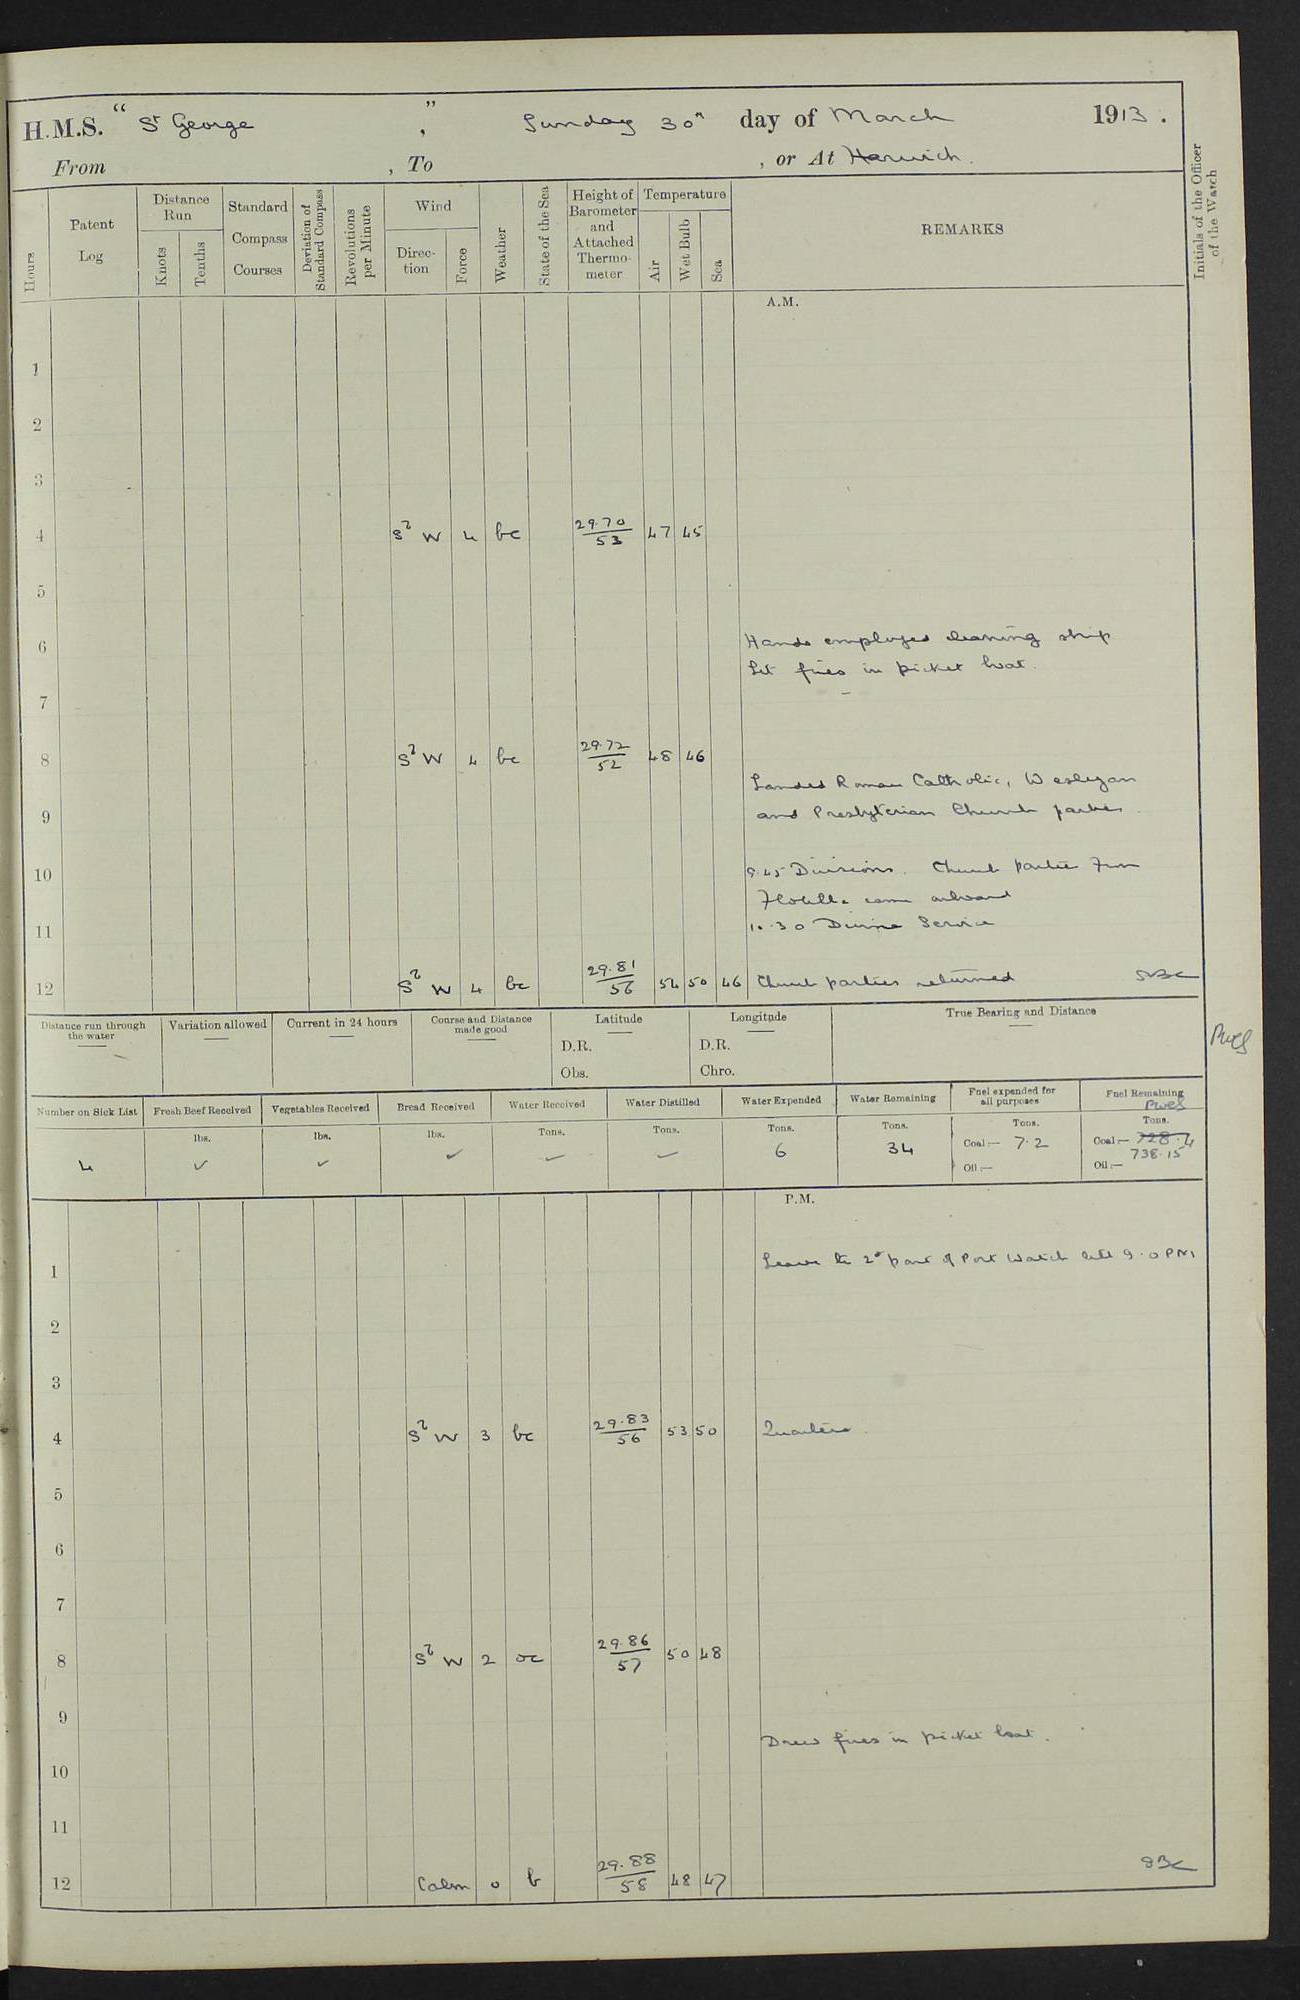 H.M.S. " St George " , Sunday 30th day of March 1913 .
From , To , or At Harwich .
Hours
Patent Log
Distance Run
Knots
Tenths
Standard Compass Courses
Deviation of Standard Compass
Revolutions per Minute
Wind
Direction
Force
Weather
State of the Sea
Height of Barometer and Attached Thermometer
Temperature
Air
Wet Bulb
Sea
REMARKS
Initials of the Officer of the Watch
A.M.
1
2
3
4 S W 4 bc 29.70/53 47 45
5
6 Hands employed cleaning ship
Lit fires in picket boat.
7
8 S W 4 bc 29.72/52 48 46
Landed Roman Catholic, Wesleyan
9 and Presbyterian Church parties.
10 9.45 Divisions. Church parties from
Flotilla came onboard
11 10.30 Divine Service
12 S W 4 bc 29.81/56 54 50 46 Church parties returned
Distance run through the water
Variation allowed
Current in 24 hours
Course and Distance made good
Latitude
D.R.
Obs.
Longitude
D.R.
Chro.
True Bearing and Distance
Number on Sick List 4
Fresh Beef Received lbs. ✓
Vegetables Received lbs. ✓
Bread Received lbs. ✓
Water Received Tons. ✓
Water Distilled Tons. ✓
Water Expended Tons. 6
Water Remaining Tons. 34
Fuel expended for all purposes Tons.
Coal:— 7.2
Oil:—
Fuel Remaining
Tons.
Coal:— 728.4
738.15
Oil:—
P.M.
1 Leave to 2nd part of Port Watch till 9.0 PM
2
3
4 S W 3 bc 29.83/56 53 50 Quarters.
5
6
7
8 S W 2 oc 29.86/57 50 48
9
Drew fires in picket boat.
10
11
12 Calm 0 b 29.88/58 48 47